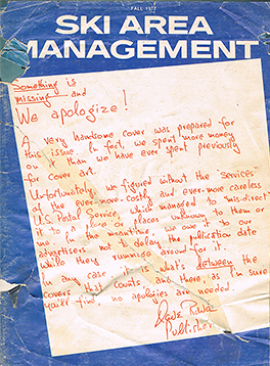 FALL 1977
SKI AREA
MANAGEMENT
Something is
missing and
We apologize!
A very handsome cover was prepared for
this issue. In fact, we spent more money
on it than we have ever spent previously
for cover art.
Unfortunately, we figured without the "services"
of the ever-more-costly and ever-more careless
U.S. Postal Service, which managed to mis-direct
it to a place or places unknown to them or
me. In the meantime, we owe to our
advertisers not to delay the publication date
while they rummage around for it.
In any case it is what's between the
covers that counts and there, as I'm sure
you'll find, no apologies are needed.
Publisher